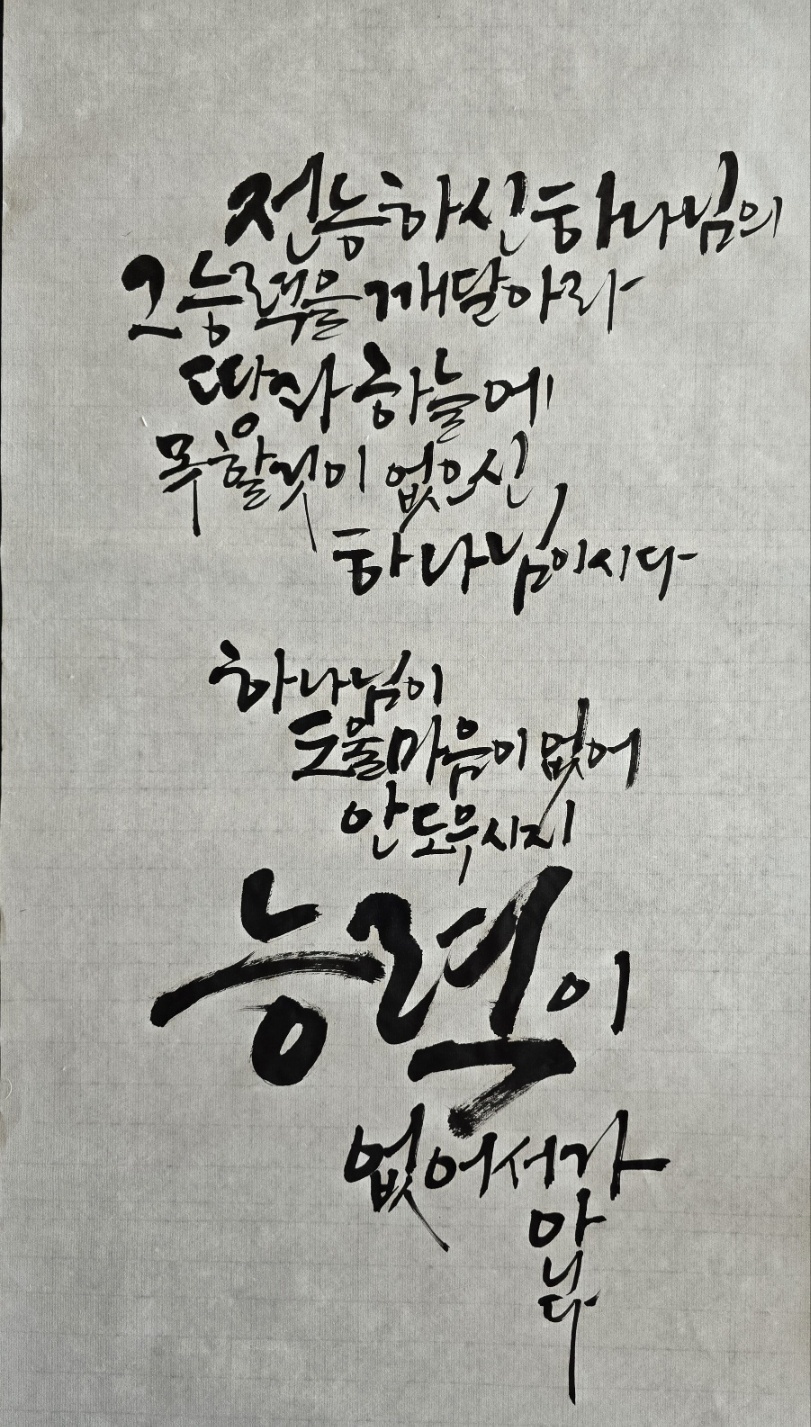 전능하신 하나님의
그 능력을 깨달아라
땅과 하늘에
못할것이 없으신
하나님이시다
하나님이
도울 마음이 없어
안 도우시지
능력이
없어서가
아
니
다